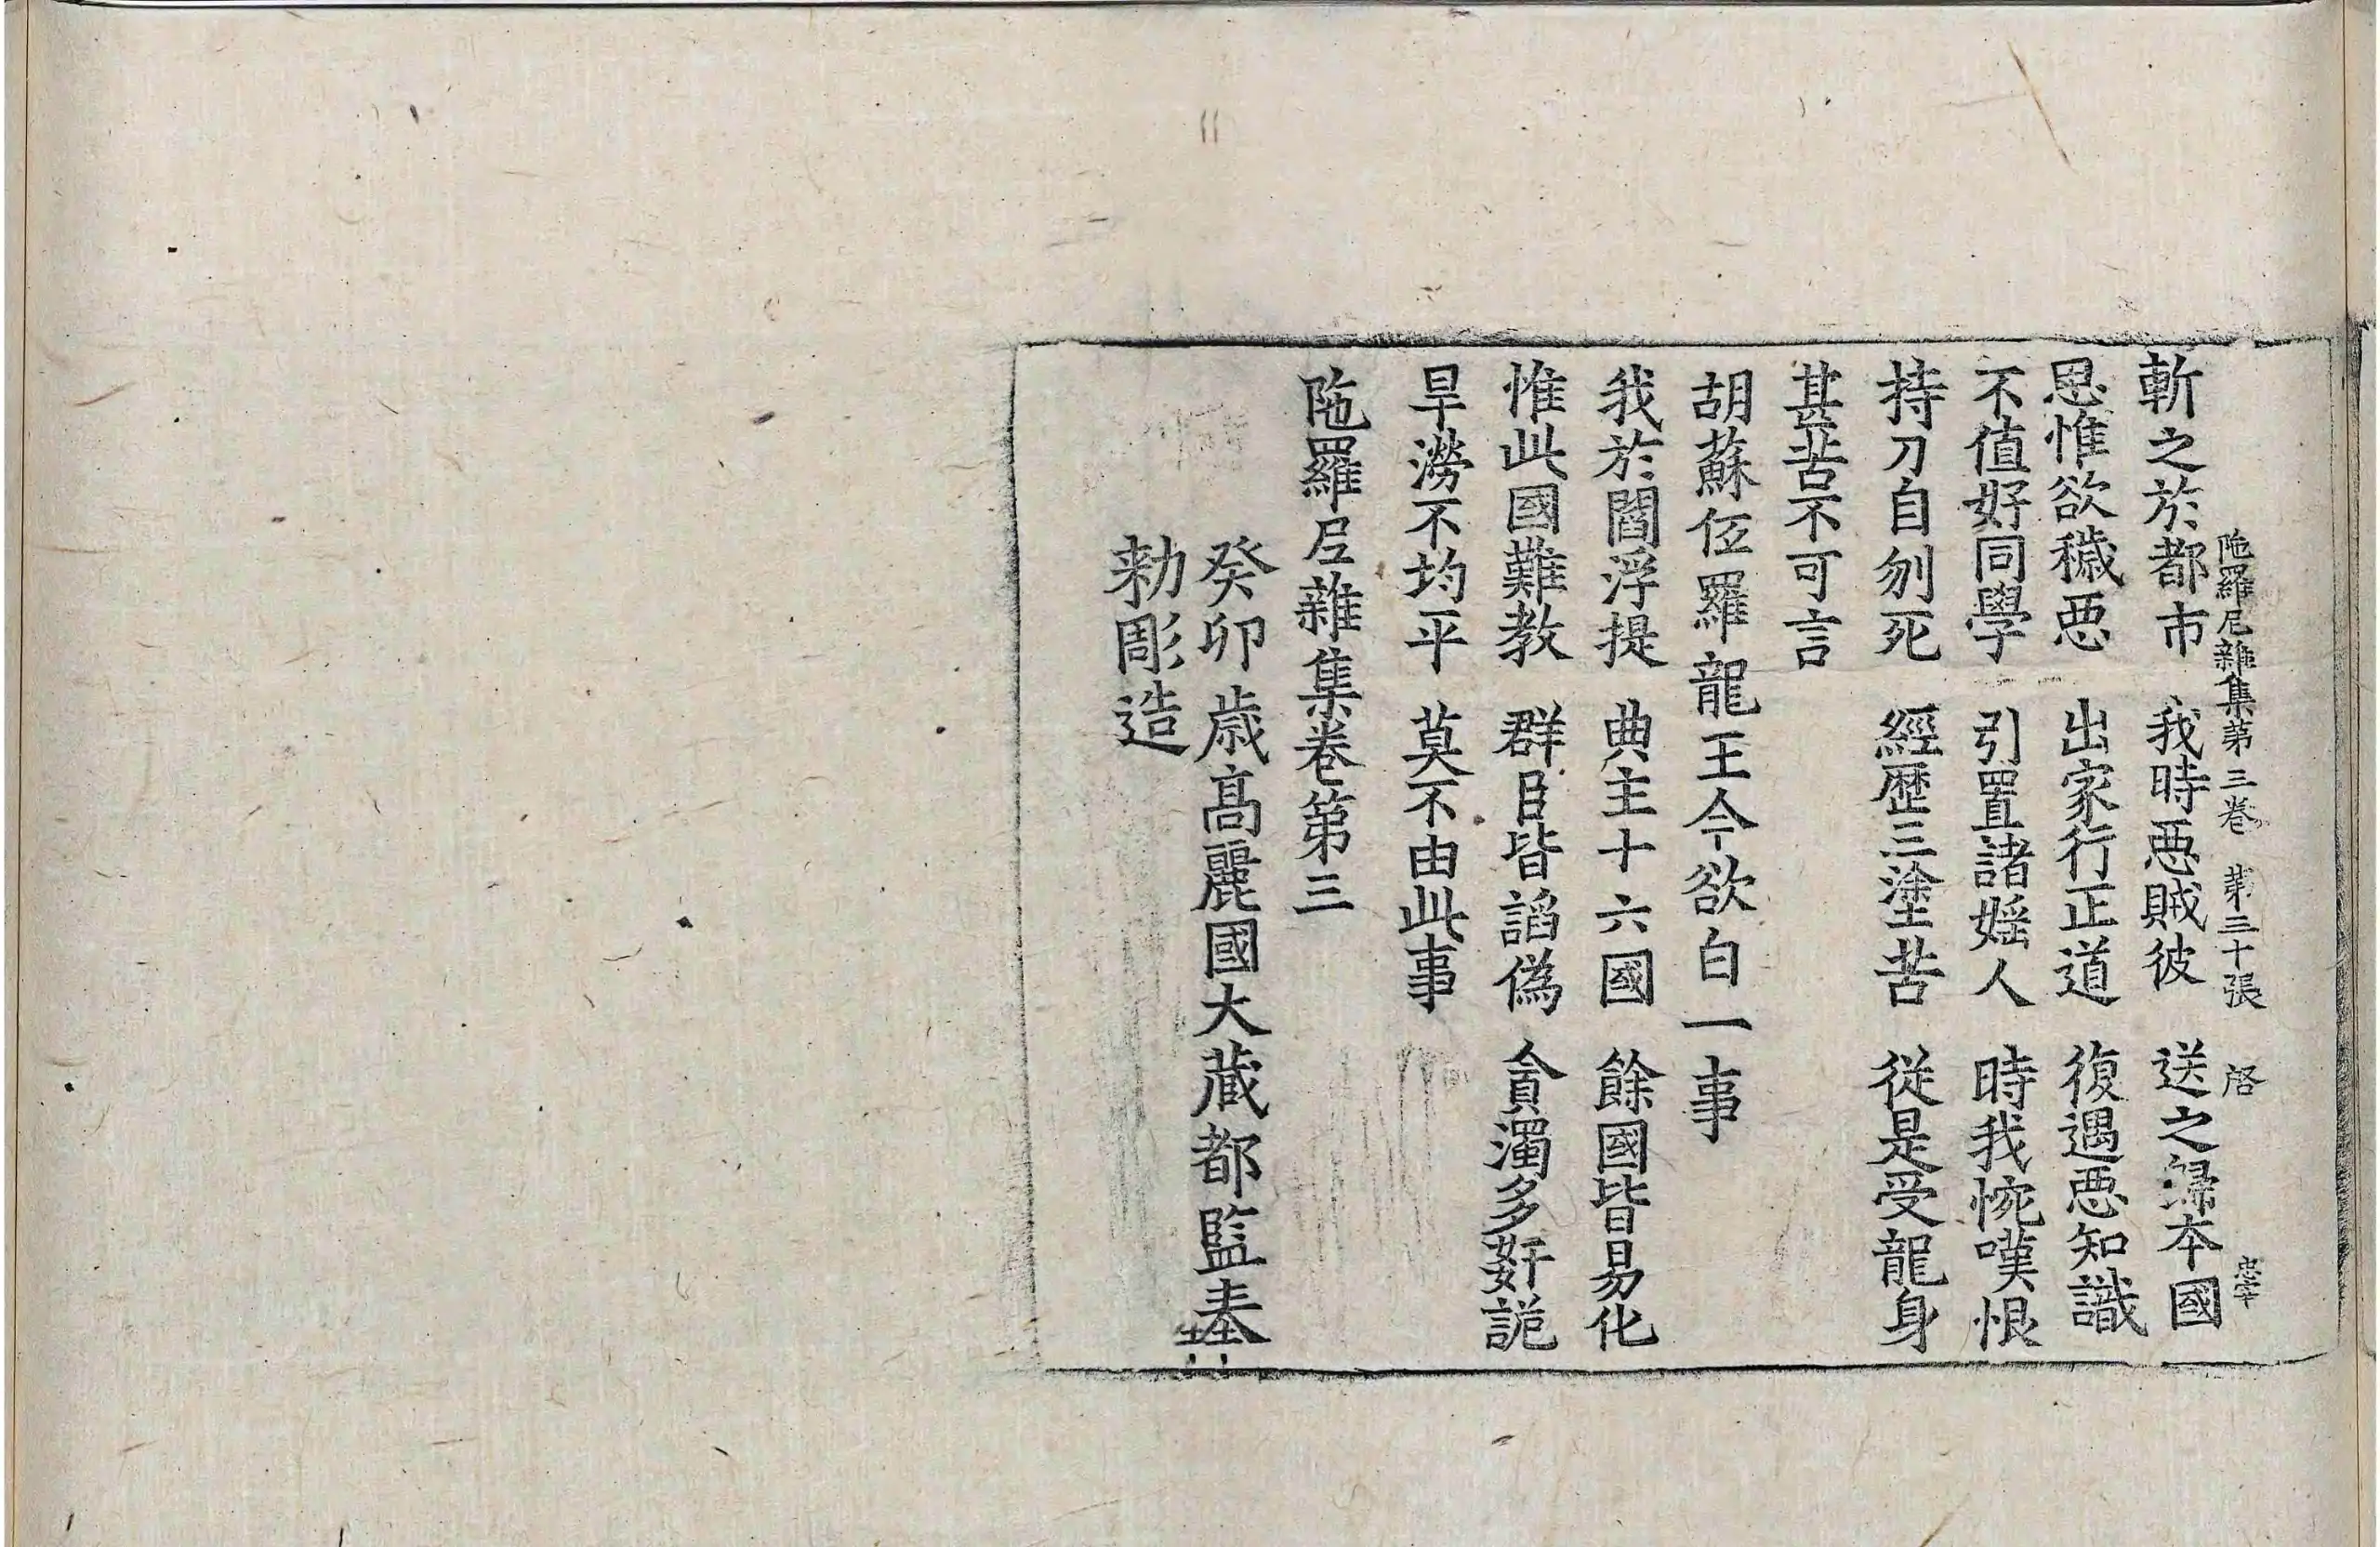 陁羅尼雜集第三卷 第三十張 啓 忠宰
斬之於都市 我時惡賊彼 送之歸本國
思惟欲穢惡 出家行正道 復遇惡知識
不值好同學 引置諸婬人 時我惋嘆恨
持刀自刎死 經歷三塗苦 從是受龍身
甚苦不可言
胡蘇伍羅龍王今欲白一事
我於閻浮提 典主十六國 餘國皆易化
惟此國難教 群臣皆諂僞 貪濁多姧詭
旱澇不均平 莫不由此事
陁羅尼雜集卷第三
癸卯歲高麗國大藏都監奉
勑彫造